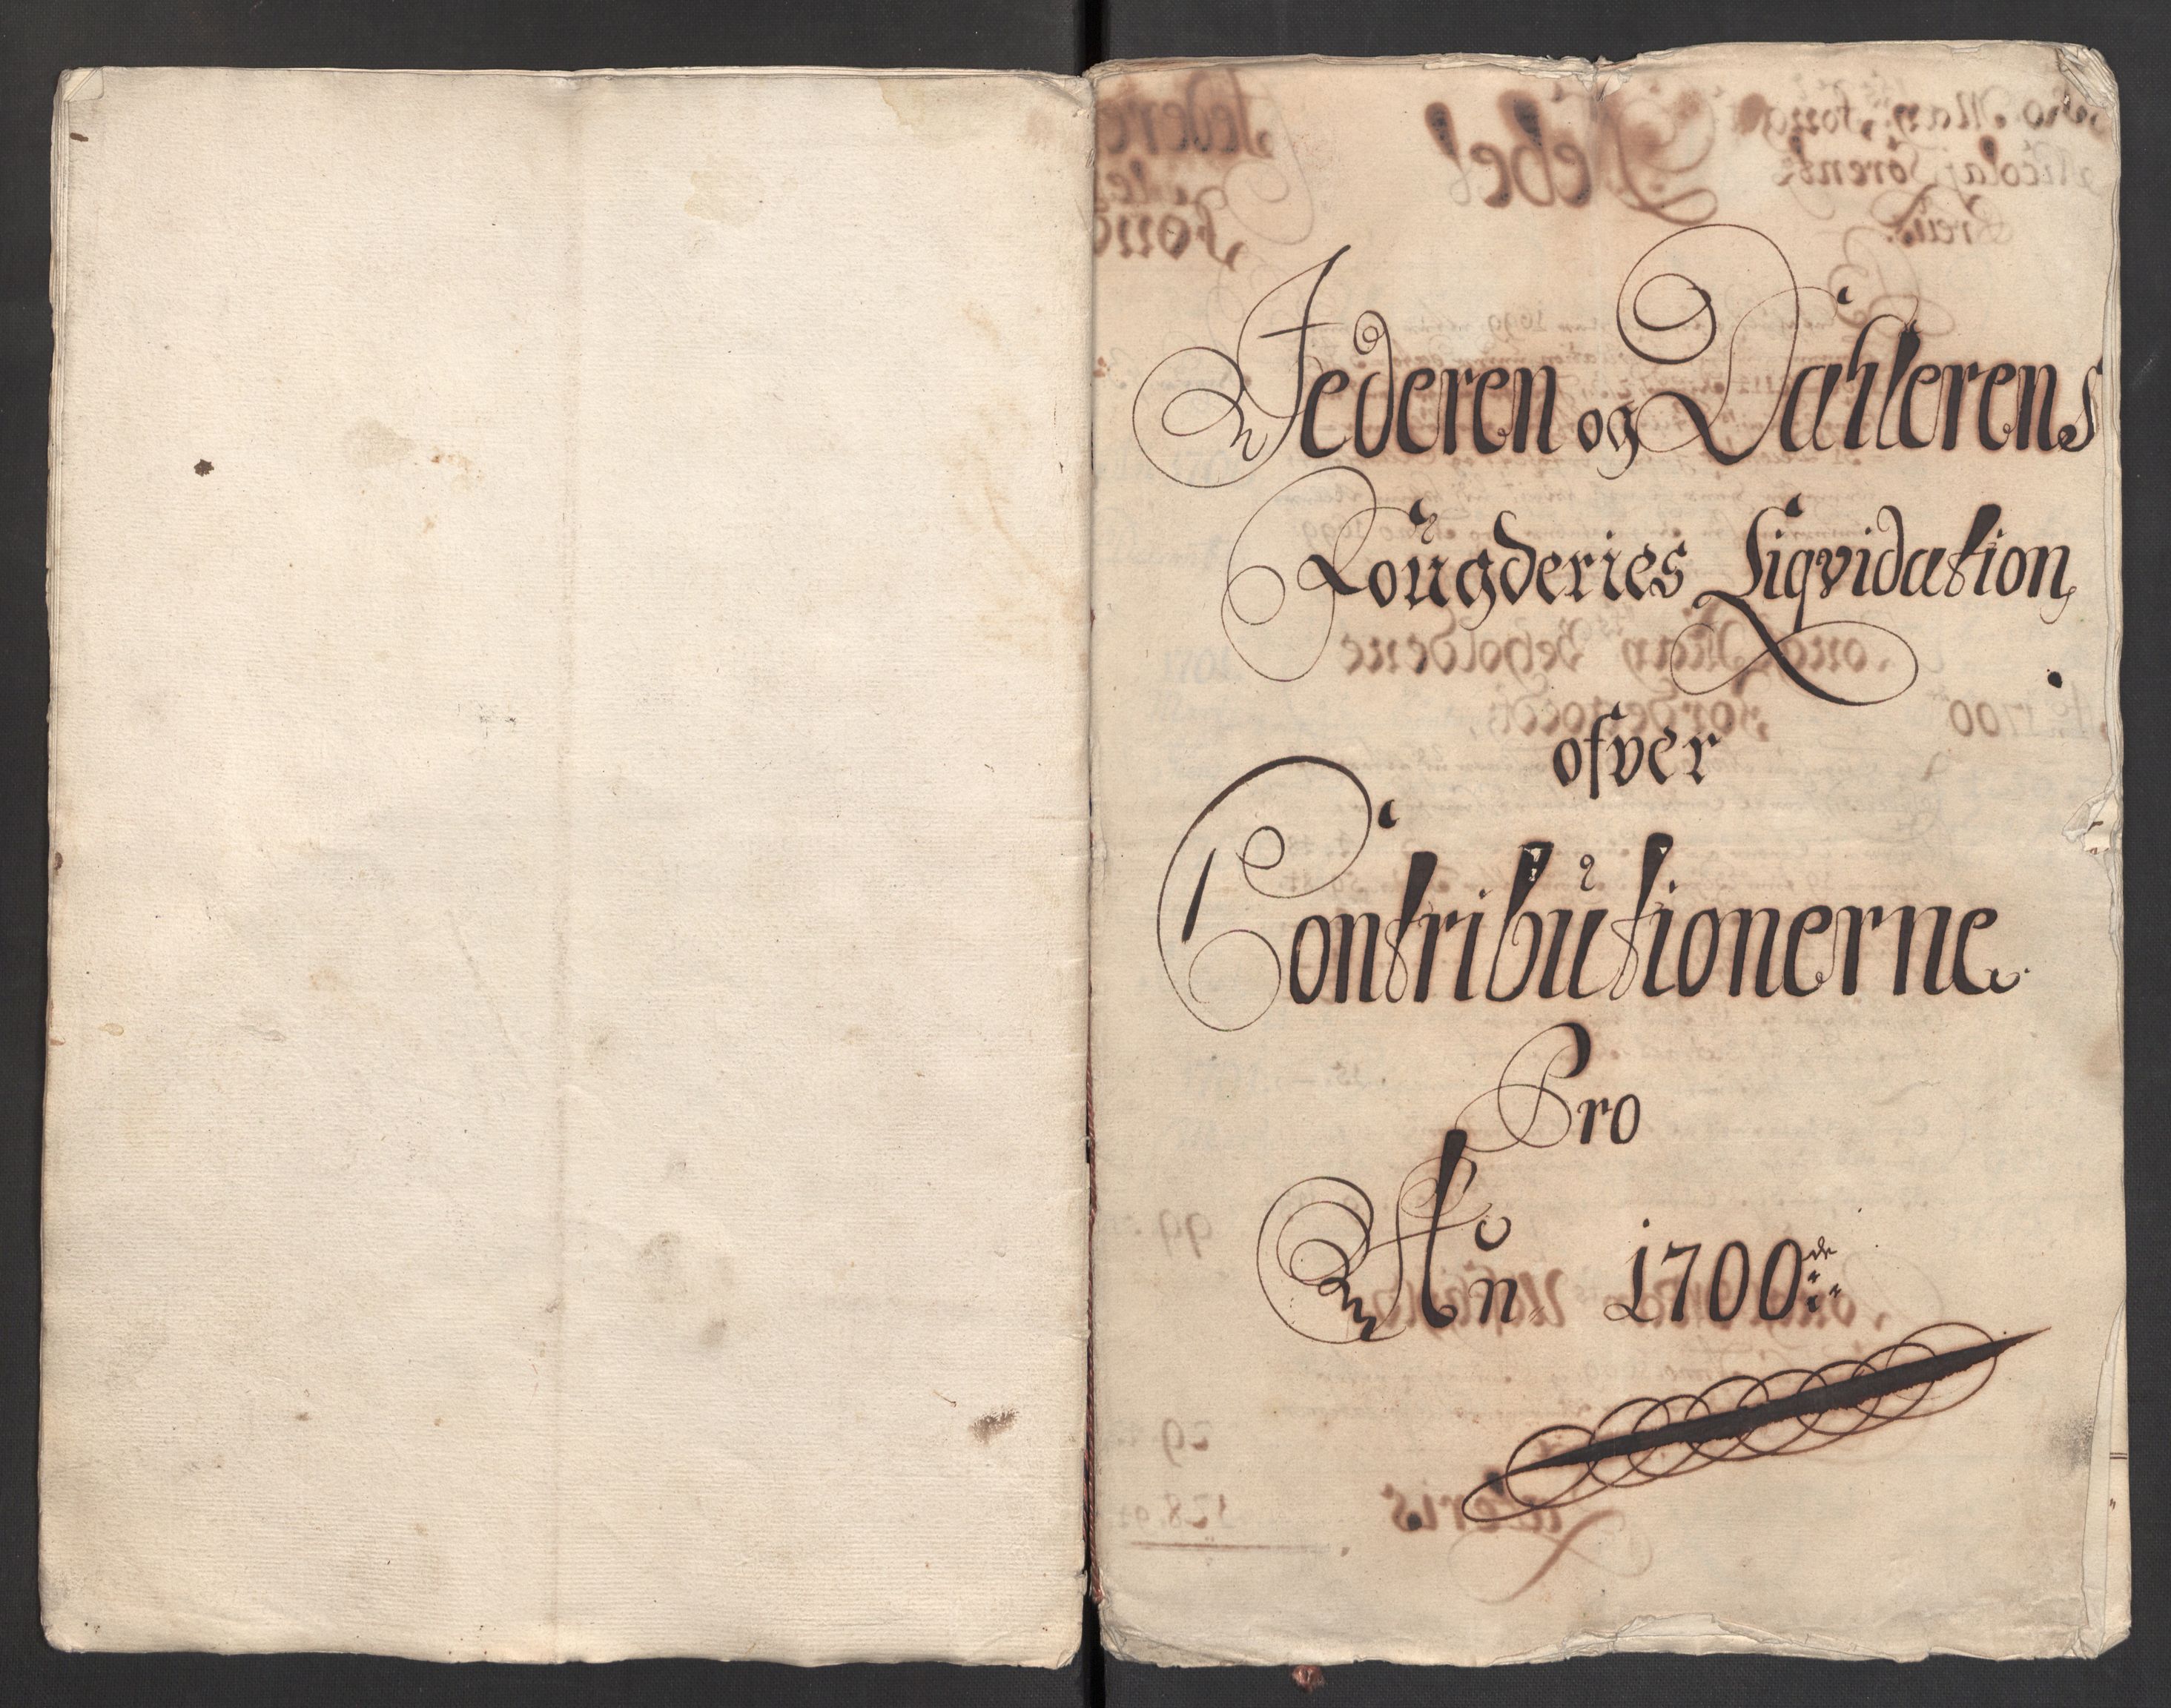 Jederen og Dahlerens
Fougderies Liqvidation
ofver
Contributionerne
Pro
An̄ 1700de